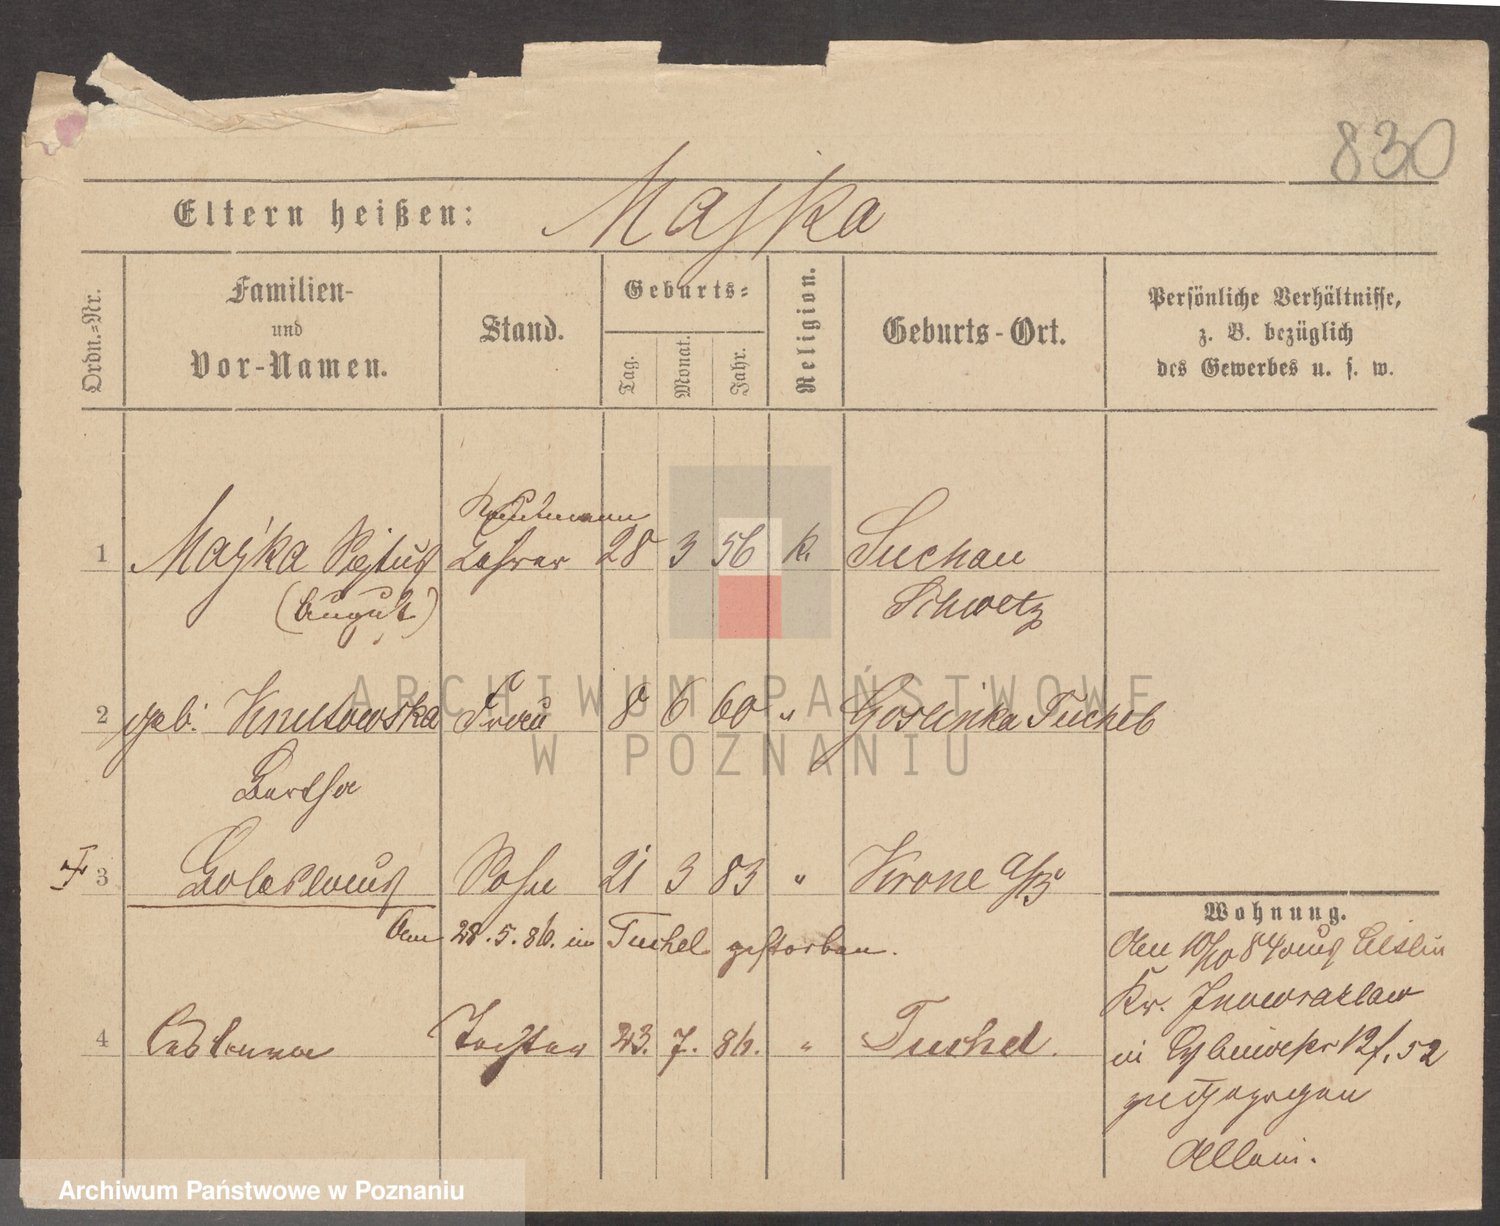 830
Eltern heißen: Majka
Ordn.-Nr.
Familien-
und
Vor-Namen.
Stand.
Geburts-
Tag.
Monat.
Jahr.
Religion.
Geburts-Ort.
Persönliche Verhältnisse,
z. B. bezüglich
des Gewerbes u. s. w.
Kaufmann
1 Majka Lehrer 28 3 56 k. Suchau
(August) Schwetz
2 geb. Knutowska Frau 8 6 60 " Goslinka Tuchel
Bertha
3 Boleslaus Sohn 21 3 83 " Krone a/B
Am 28.5.86. in Tuchel gestorben.
4 Tochter 23. 7. 86. " Tuchel.
Wohnung.
Den 10/10 84 aus
Kr. Inowrazlaw
in 12 f. 52
Allein.
ARCHIWUM PAŃSTWOWE
W POZNANIU
Archiwum Państwowe w Poznaniu